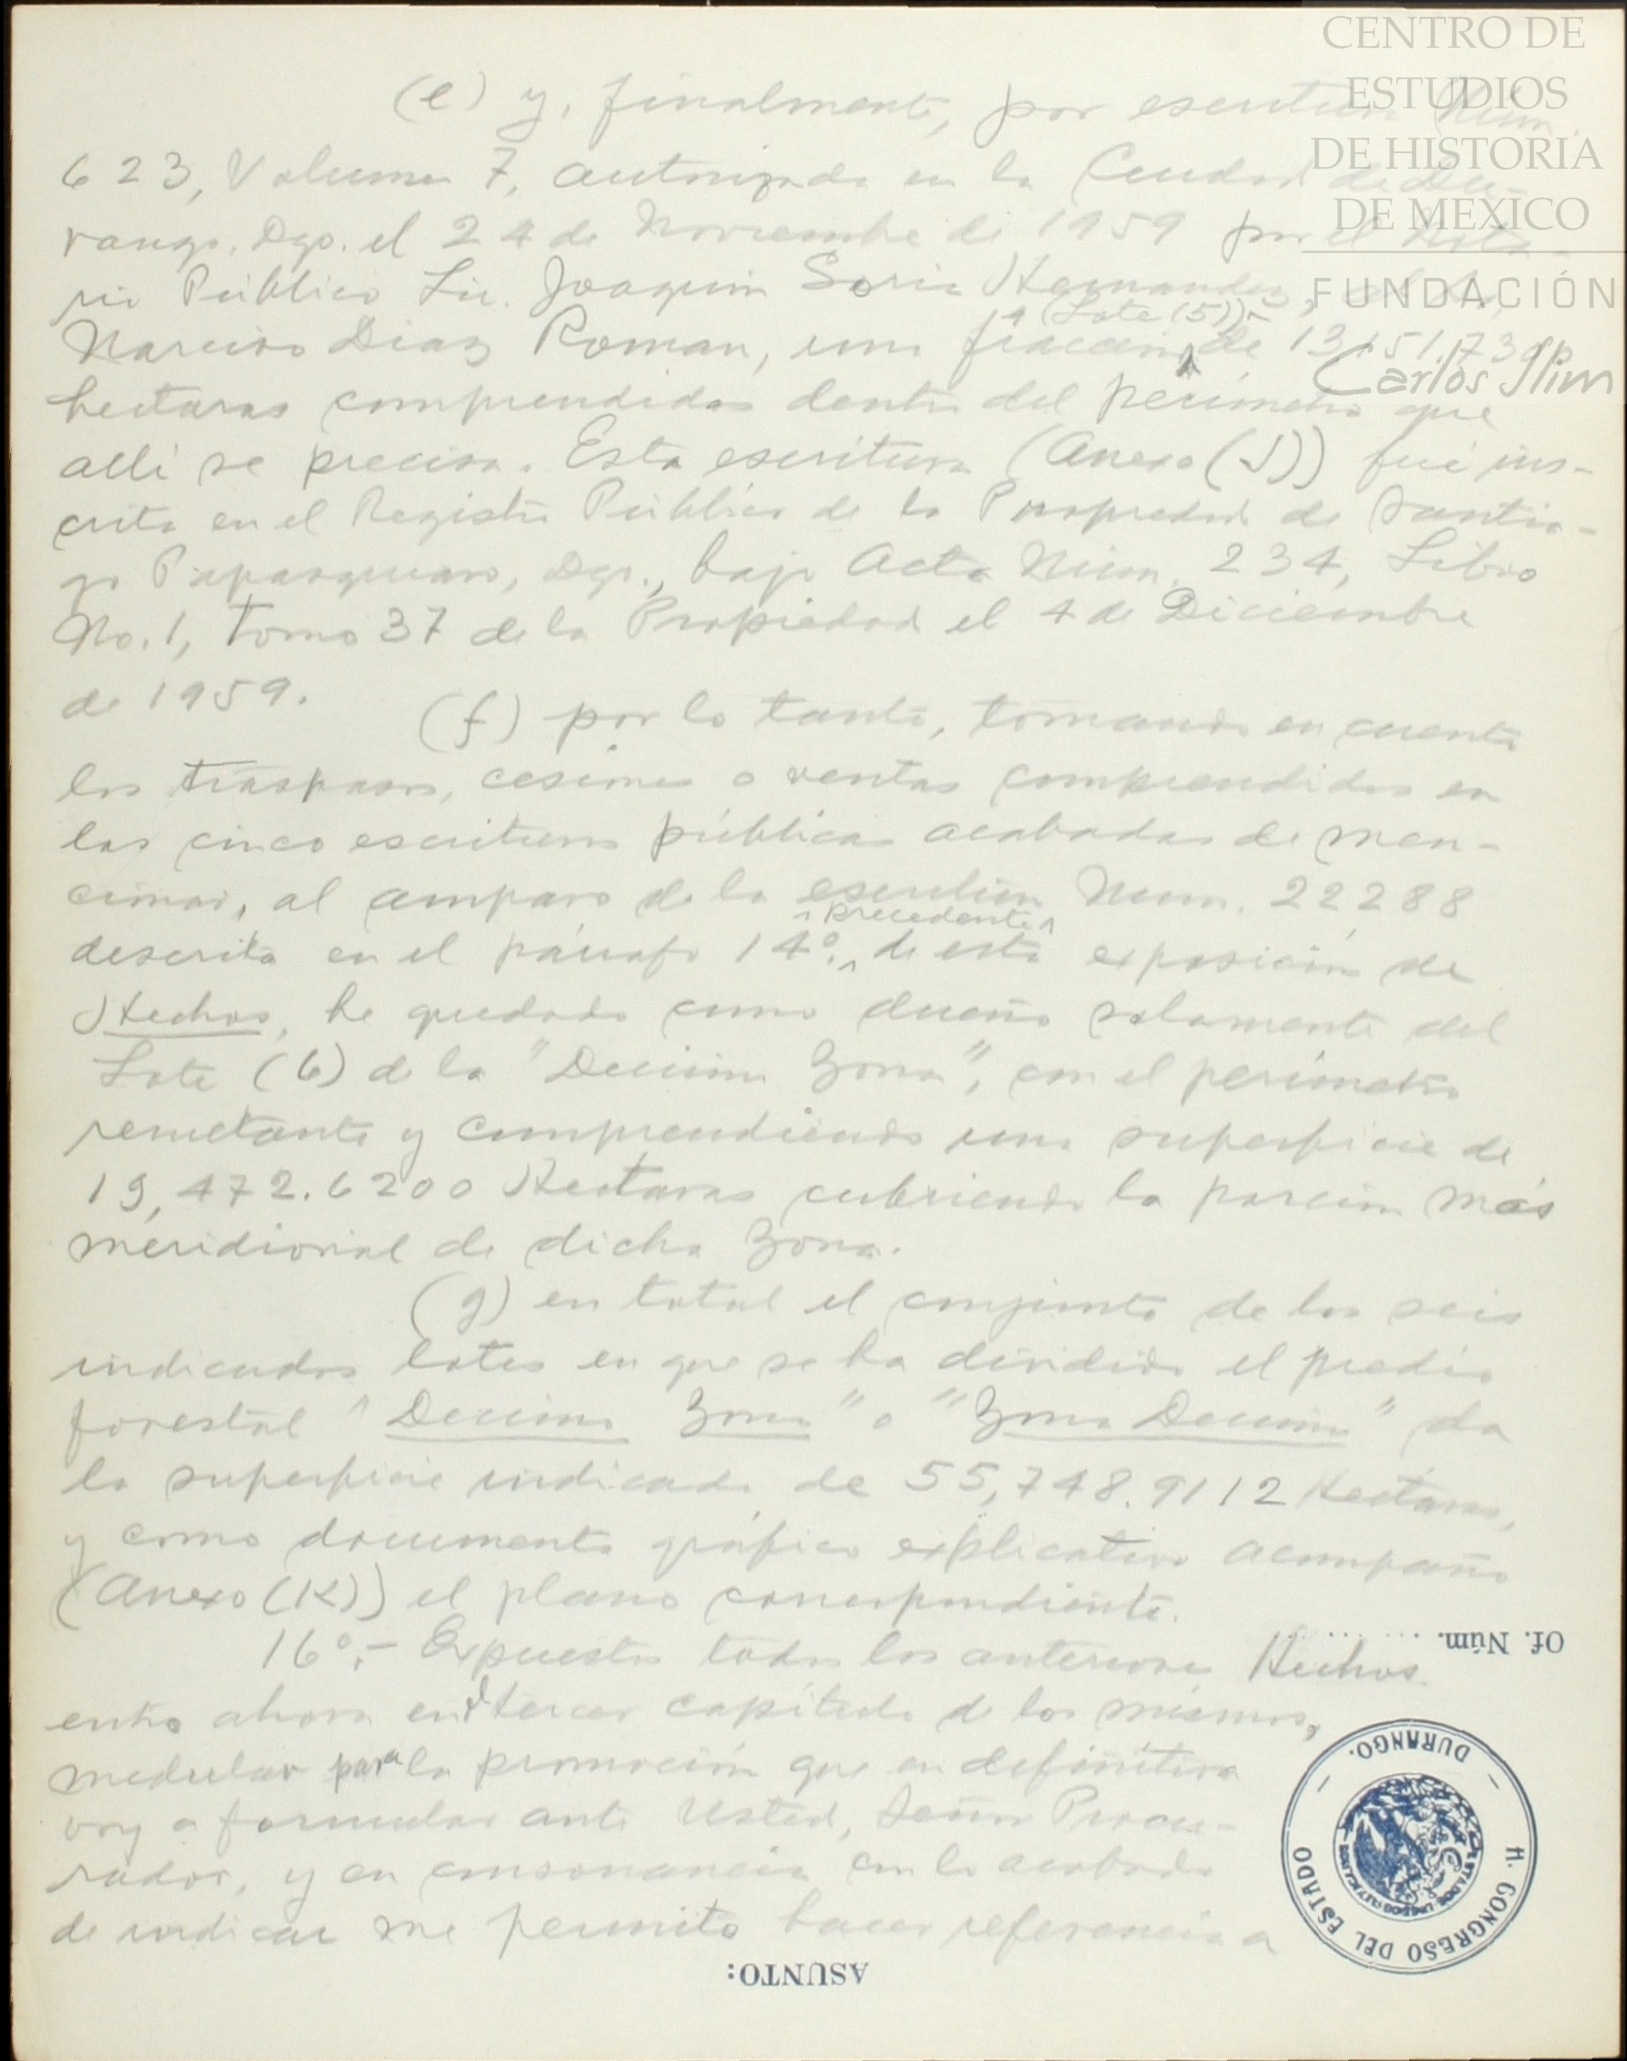 CENTRO DE
ESTUDIOS
DE HISTORIA
DE MEXICO
FUNDACIÓN
Carlos Slim
(e) y, finalmente, por escritura Núm.
623, Volumen 7, autorizada en la Ciudad de Du-
rango, Dgo. el 24 de Noviembre de 1959 por el Nota-
rio Público Lic. Joaquin Soria Hernandez,
(Lote (5))
Narciso Diaz Roman, una fracción de 13,151.73
hectaras comprendidas dentro del perímetro que
alli se precisa. Esta escritura (Anexo (J)) fué ins-
crita en el Registro Público de la Propiedad de Santia-
go Papasquiaro, Dgo., bajo Acta Núm. 234, Libro
No. 1, Tomo 37 de la Propiedad el 4 de Diciembre
de 1959.
(f) por lo tanto, tomando en cuenta
los traspasos, cesiones o ventas comprendidas en
las cinco escrituras públicas acabadas de men-
cionar, al amparo de la escritura Num. 22288
precedente
descrita en el párrafo 14º. de esta exposición de
Hechos, he quedado como dueño solamente del
Lote (6) de la "Decima Zona", con el perímetro
remetante y comprendiendo una superficie de
19,472.6200 Hectaras cubriendo la porción más
meridional de dicha Zona.
(g) en total el conjunto de los seis
indicados lotes en que se ha dividido el predio
forestal "Decima Zona" o "Zona Decima" da
la superficie indicada de 55,748.9112 Hectaras,
y como documento gráfico explicativo acompaño
(Anexo (K)) el plano correspondiente.
Of. Núm. ........
16º.- Expuestos todos los anteriores Hechos
entro ahora en el tercer capítulo de los mismos,
medular para la promoción que en definitiva
voy a formular ante Usted, Señor Procu-
rador, y en consonancia con lo acabado
de indicar me permito hacer referencia a
H. CONGRESO DEL ESTADO
DURANGO.
ESTADOS UNIDOS MEXICANOS
ASUNTO: